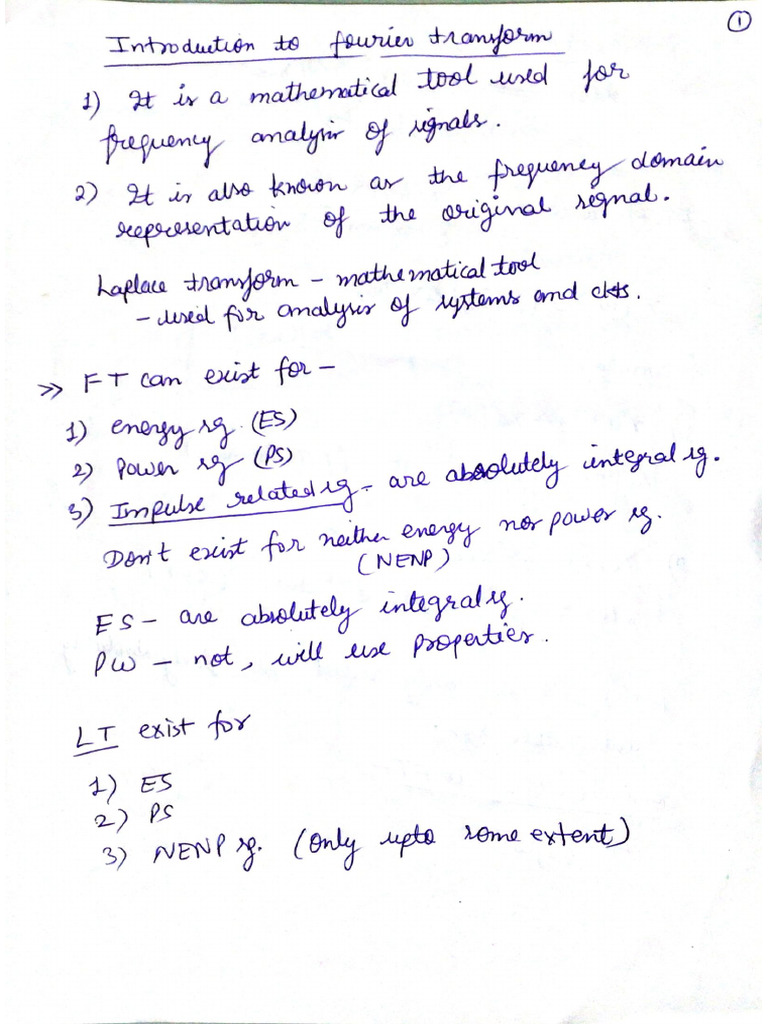 ①
Introduction to fourier transform
1) It is a mathematical tool used for
frequency analysis of signals.
2) It is also known as the frequency domain
representation of the original signal.
Laplace transform - mathematical tool
- used for analysis of systems and ckts.
>> FT can exist for -
1) energy sg. (ES)
2) Power sg (PS)
3) Impulse related sg - are absolutely integral sg.
Don't exist for neither energy nor power sg.
(NENP)
ES - are absolutely integral sg.
PW - not, will use properties.
LT exist for
1) ES
2) PS
3) NENP sg. (Only upto some extent)